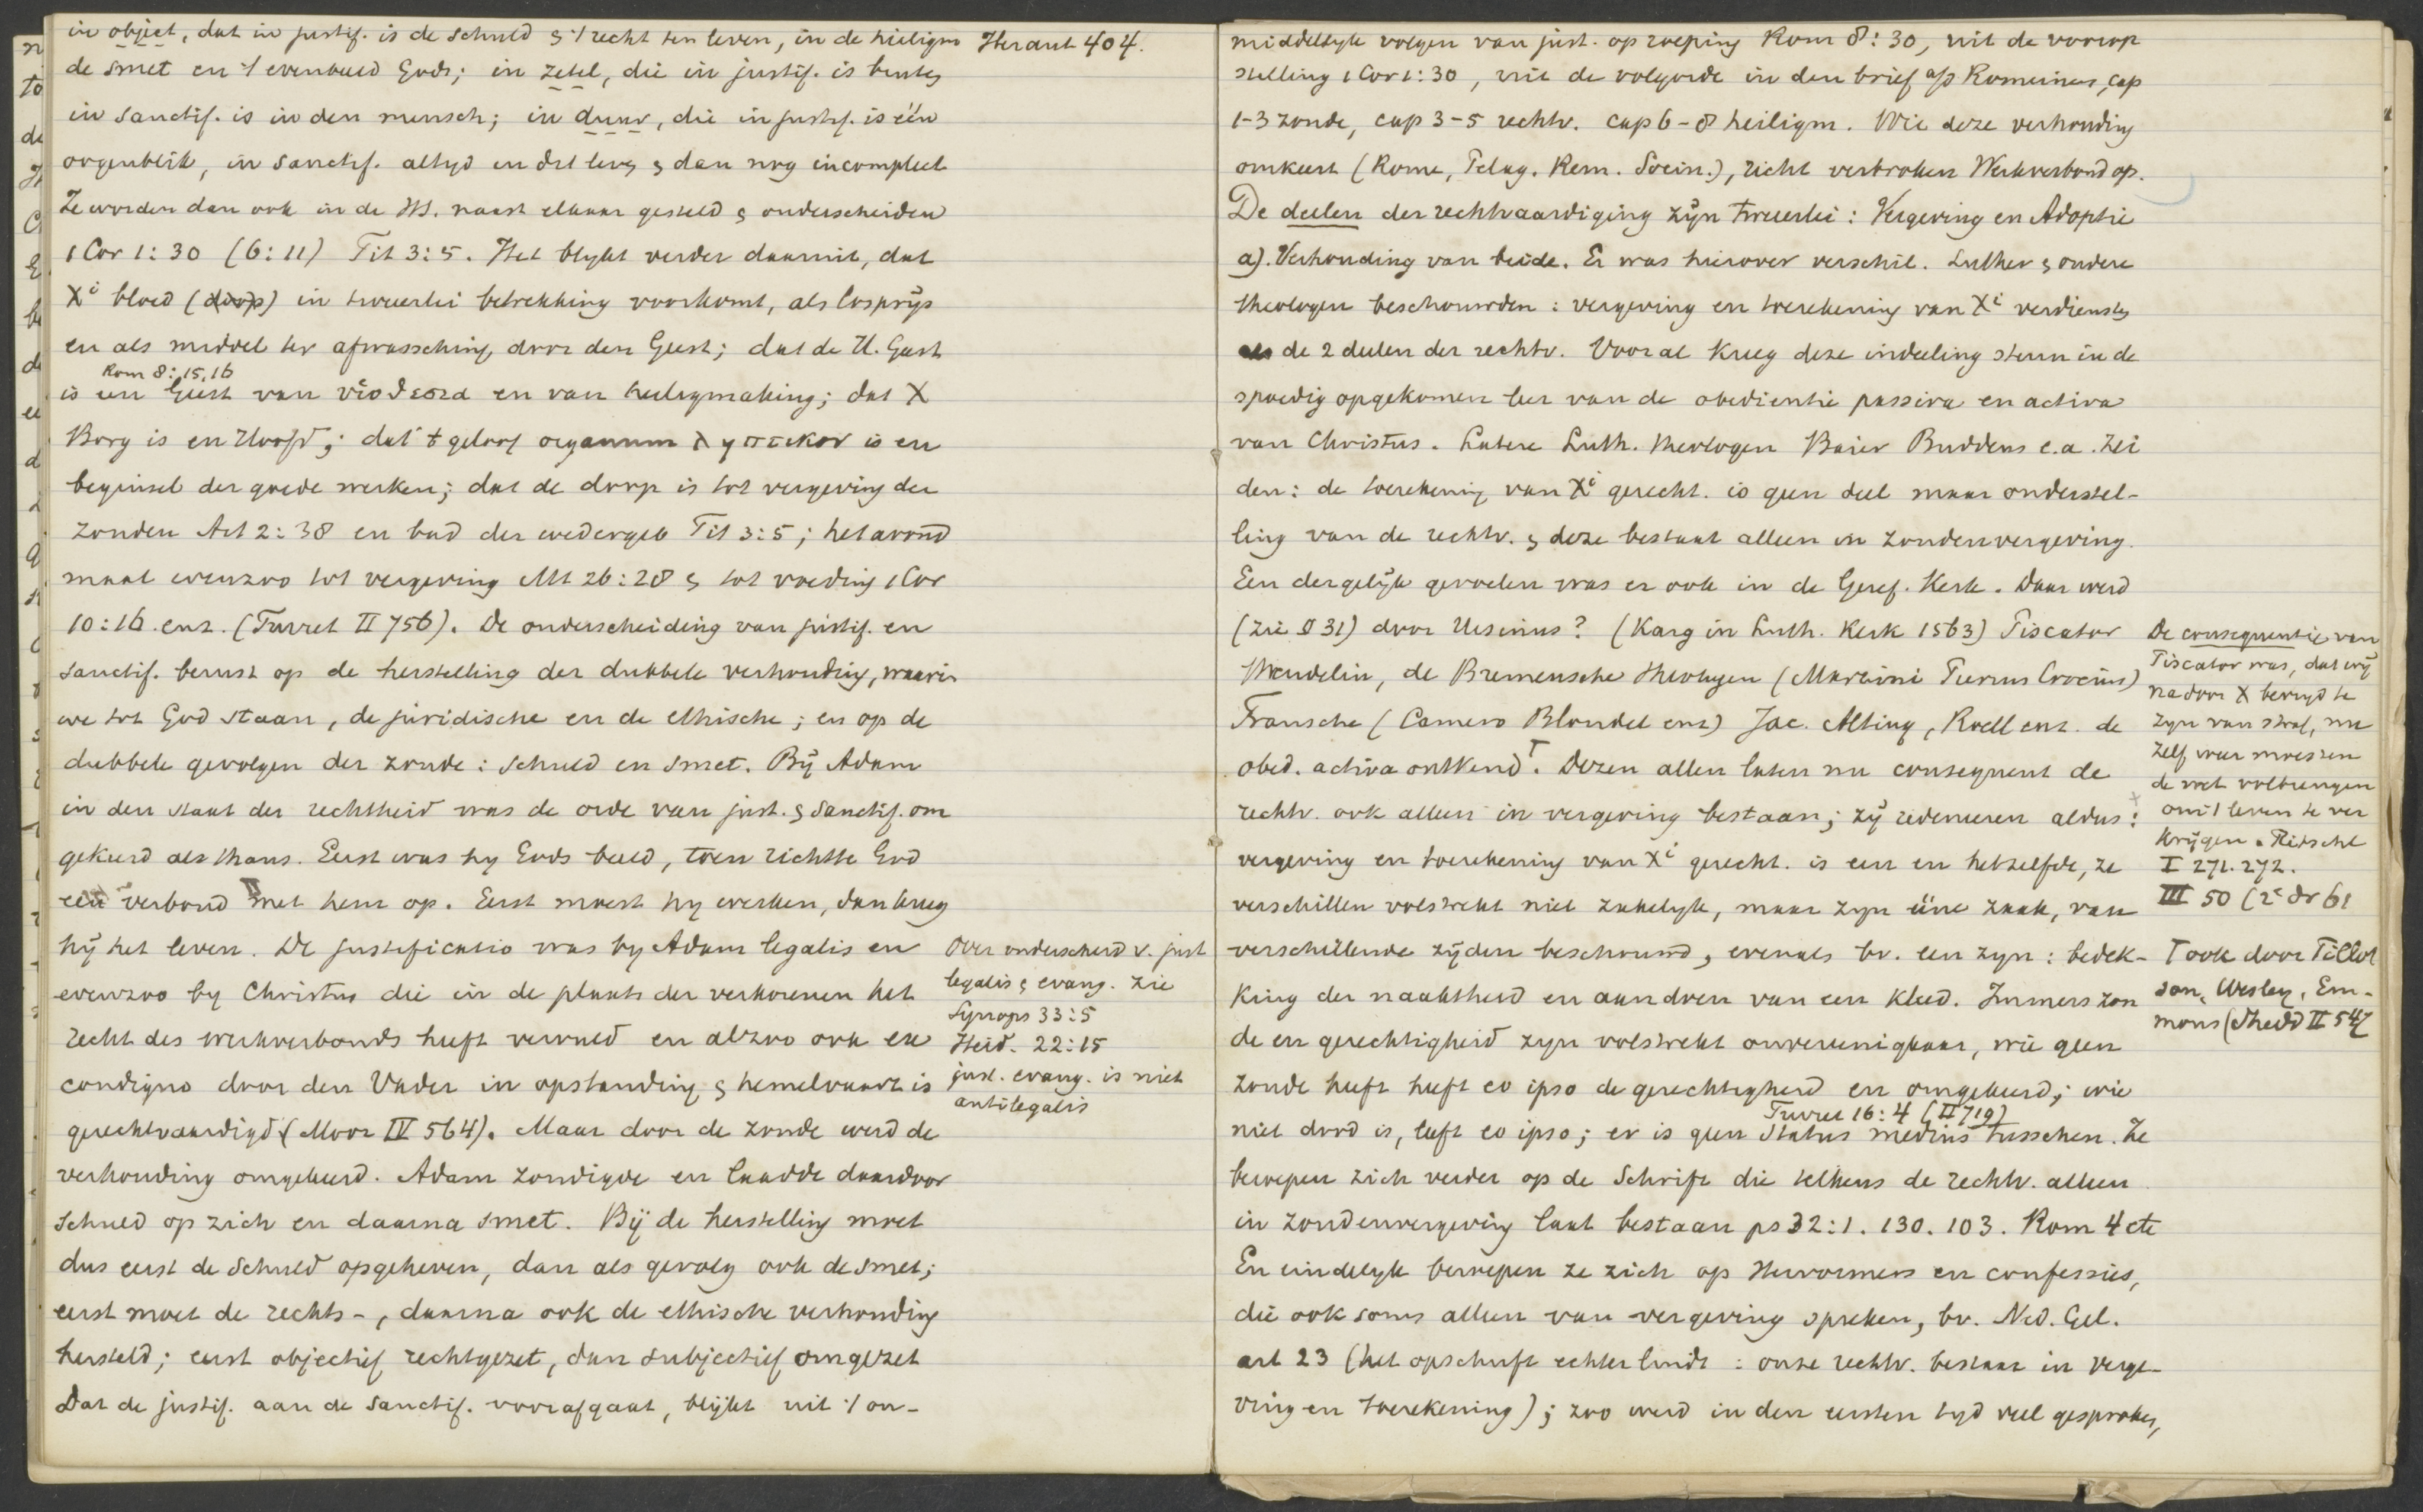 in object, dat in justif. is de schuld & 't recht ten leven, in de heiligm
de smet en 't evenbeeld Gods; in zetel, die in justif. is buiten
in sanctif. is in den mensch; in duur, die in justif. is één
oogenblik, in sanctif. altyd in dit leven & dan nog incompleet
Ze worden dan ook in de H.S. naast elkaar gesteld & onderscheiden
1 Cor 1:30 (6:11) Tit 3:5. Het blykt verder daaruit, dat
Xi bloed (doop) in tweeerlei betrekking voorkomt, als losprÿs
en als middel ter afwassching door den Geest; dat de H. Geest
Rom 8:15,16
is een Geest van υἱοθεσια en van heiligmaking; dat X
Borg is en Hoofd; dat 't geloof organum ληπτικον is en
beginsel der goede werken; dat de doop is tot vergeving der
zonden Act 2:38 en bad der wedergeb Tit 3:5; het avond
maal evenzoo tot vergeving Mt 26:28 & tot voeding 1 Cor
10:16. enz. (Turret II 756). De onderscheiding van justif. en
sanctif. berust op de herstelling der dubbele verhouding, waarin
we tot God staan, de juridische en de ethische; en op de
dubbele gevolgen der zonde: schuld en smet. Bÿ Adam
in den staat der rechtheid was de orde van just. & sanctif. om
gekeerd als thans. Eerst was hy Gods beeld, toen richtte God
een verbond met hem op. Eerst moest hy werken, dan kreeg
hÿ het leven. De justificatio was by Adam legalis en
evenzoo by Christus die in de plaats der verkorenen het
recht des werkverbonds heeft vervuld en alzoo ook ex
condigno door den Vader in opstanding & hemelvaart is
gerechtvaardigd (Moor IV 564). Maar door de zonde werd de
verhouding omgekeerd. Adam zondigde en laadde daardoor
schuld op zich en daarna smet. Bÿ de herstelling moet
dus eerst de schuld opgeheven, dan als gevolg ook de smet;
eerst moet de rechts-, daarna ook de ethische verhouding
hersteld; eerst objectief rechtgezet, dan subjectief omgezet
Dat de justif. aan de sanctif. voorafgaat, blÿkt uit 't on-
Heraut 404.
Over onderscheid v. just
legalis & evang. zie
Synops 33:5
Heid. 22:15
just. evang. is niet
antilegalis
middellyk volgen van just. op roeping Rom 8:30, uit de voorop
stelling 1 Cor 1:30, uit de volgorde in den brief a/d Romeinen, cap
1-3 zonde, cap 3-5 rechtv. cap 6-8 heiligm. Wie deze verhouding
omkeert (Rome, Pelag. Rem. Socin.), richt verbroken Werkverbond op.
De deelen der rechtvaardiging zÿn tweeerlei: Vergeving en Adoptie
a). Verhouding van beide. Er was hierover verschil. Luther & andere
theologen beschouwden: vergeving en toerekening van Xi verdiensten
als de 2 deelen der rechtv. Vooral kreeg deze indeeling steun in de
spoedig opgekomen leer van de obedientie passiva en activa
van Christus. Latere Luth. theologen Baier Buddeus e.a. zei
den: de toerekening van Xi gerecht. is geen deel maar onderstel-
ling van de rechtv. & deze bestaat alleen in zondenvergeving.
Een dergelÿk gevoelen was er ook in de Geref. Kerk. Daar werd
(zie § 31) door Ursinus? (Karg in Luth. Kerk 1563) Piscator
Wendelin, de Bremensche theologen (Martini Pierius Crocius)
Fransche (Camero Blondel enz) Jac. Alting, Roell enz. de
obed. activa ontkend T. Dezen allen laten nu consequent de
rechtv. ook alleen in vergeving bestaan; zÿ redeneeren aldus:
vergeving en toerekening van Xi gerecht. is een en hetzelfde, ze
verschillen volstrekt niet zakelyk, maar zyn eene zaak, van
verschillende zÿden beschouwd, evenals bv. een zyn: bedek-
king der naaktheid en aandoen van een kleed. Immers zon
de en gerechtigheid zyn volstrekt onvereenigbaar, wie geen
zonde heeft heeft eo ipso de gerechtigheid en omgekeerd; wie
Turret 16:4 (II 719)
niet dood is, leeft eo ipso; er is geen status medius tusschen. Ze
beroepen zich verder op de Schrift die telkens de rechtv. alleen
in zondenvergeving laat bestaan ps 32:1. 130. 103. Rom 4 etc
En eindelyk beroepen ze zich op Hervormers en confessies,
die ook soms alleen van vergeving spreken, bv. Ned. Gel.
art 23 (het opschrift echter luidt: onze rechtv. bestaat in verge-
ving en toerekening); zoo werd in den eersten tyd veel gesproken,
De consequentie van
Piscator was, dat wÿ
na door X bevryd te
zyn van straf, nu
zelf weer moesten
de wet volbrengen
om 't leven te ver
krÿgen. Ritschl
I 271. 272.
III 50 (2e dr 61
T ook door Tillot
son, Wesley, Em-
mons (Shedd II 547